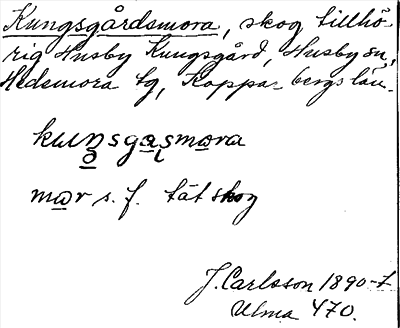 Kungsgårdsmora, skog tillhö-
rig Husby Kungsgård, Husby sn,
Hedemora tg, Kopparbergs län.
mår s. f. tät skog
J. Carlsson 1890-t.
Ulma 470.